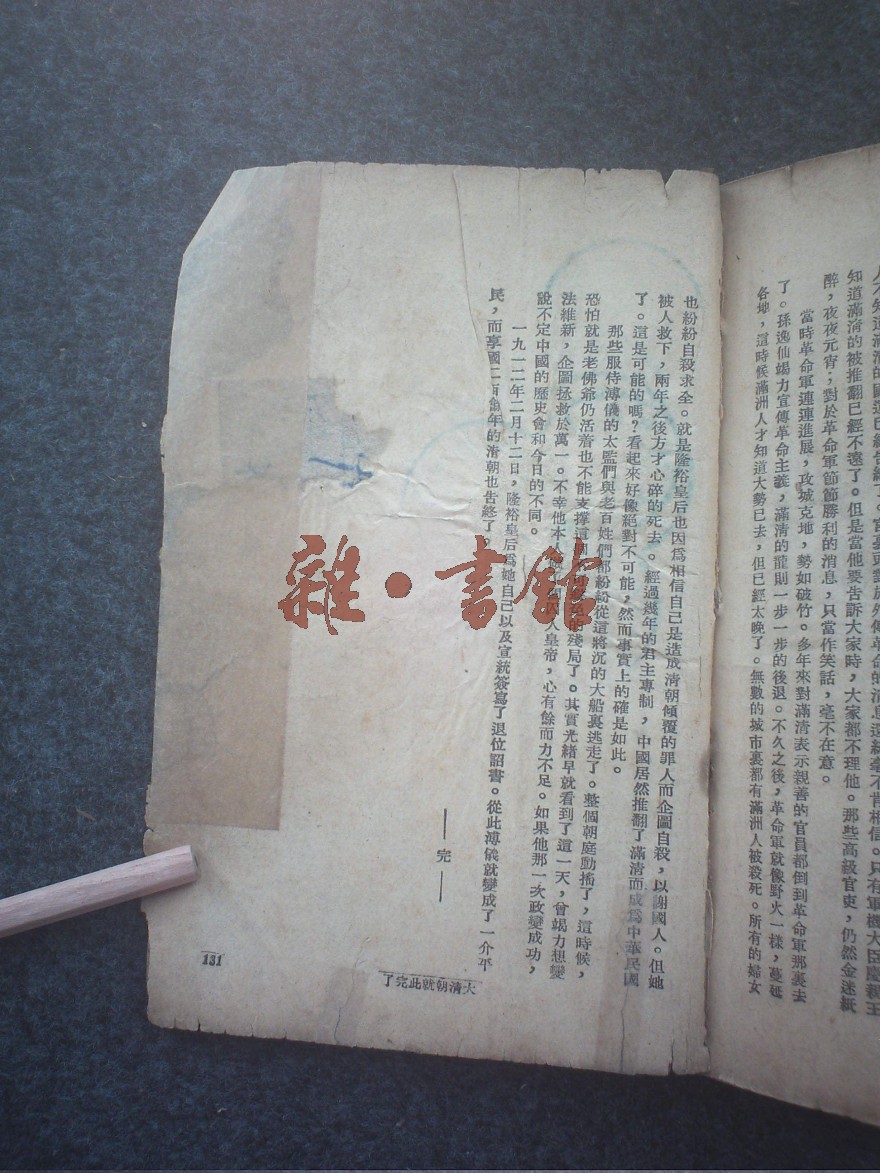 知道滿淸的被推翻已經不遠了。但是當他要告訴大家時，大家都不理他。那些高級官吏，仍然金迷紙
醉，夜夜元宵；對於革命軍節節勝利的消息，只當作笑話，毫不在意。
當時革命軍連連進展，攻城克地，勢如破竹。多年來對滿淸表示親善的官員都倒到革命軍那裏去
了。孫逸仙竭力宣傳革命主義，滿淸的龍則一步一步的後退。不久之後，革命軍就像野火一樣，蔓延
各地，這時候滿洲人才知道大勢已去，但已經太晚了。無數的城市裏都有滿洲人被殺死。所有的婦女
也紛紛自殺求全。就是隆裕皇后也因爲相信自己是造成淸朝傾覆的罪人而企圖自殺，以謝國人。但她
被人救下，兩年之後方才心碎的死去。經過幾年的君主專制，中國居然推翻了滿淸而成爲中華民國
了。這是可能的嗎？看起來好像絕對不可能，然而事實上的確是如此。
那些服侍溥儀的太監們與老百姓們都紛紛從這將沉的大船裏逃走了。整個朝庭動搖了，這時候，
恐怕就是老佛爺仍活着也不能支撐這個殘局了。其實光緒早就看到了這一天，曾竭力想變
法維新，企圖拯救於萬一。不幸他本人皇帝，心有餘而力不足。如果他那一次政變成功，
說不定中國的歷史會和今日的不同。
一九一二年二月十二日，隆裕皇后爲她自己以及宣統簽寫了退位詔書。從此溥儀就變成了一介平
民，而享國二百餘年的淸朝也告終了。
—完—
大淸朝就此完了
131
雜·書館